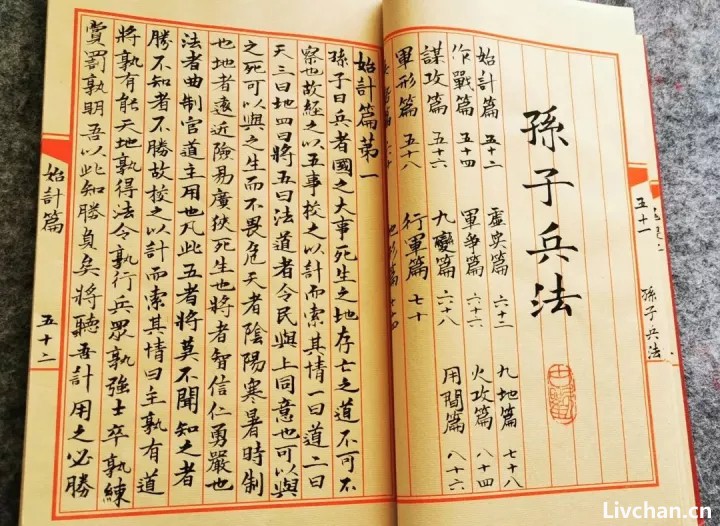 孫子兵法
五十一
孫子兵法
始計篇 五十二
作戰篇 五十四
謀攻篇 五十六
軍形篇 五十八
虛實篇 六十二
軍爭篇 六十六
九變篇 六十八
行軍篇 七十
九地篇 七十八
火攻篇 八十四
用間篇 八十六
始計篇第一
孫子曰兵者國之大事死生之地存亡之道不可不
察也故經之以五事校之以計而索其情一曰道二曰
天三曰地四曰將五曰法道者令民與上同意也可以與
之死可以與之生而不畏危天者陰陽寒暑時制
也地者遠近險易廣狹死生也將者智信仁勇嚴也
法者曲制官道主用也凡此五者將莫不聞知之者
勝不知者不勝故校之以計而索其情曰主孰有道
將孰有能天地孰得法令孰行兵眾孰強士卒孰練
賞罰孰明吾以此知勝負矣將聽吾計用之必勝
始計篇
五十二
Livchan.cn